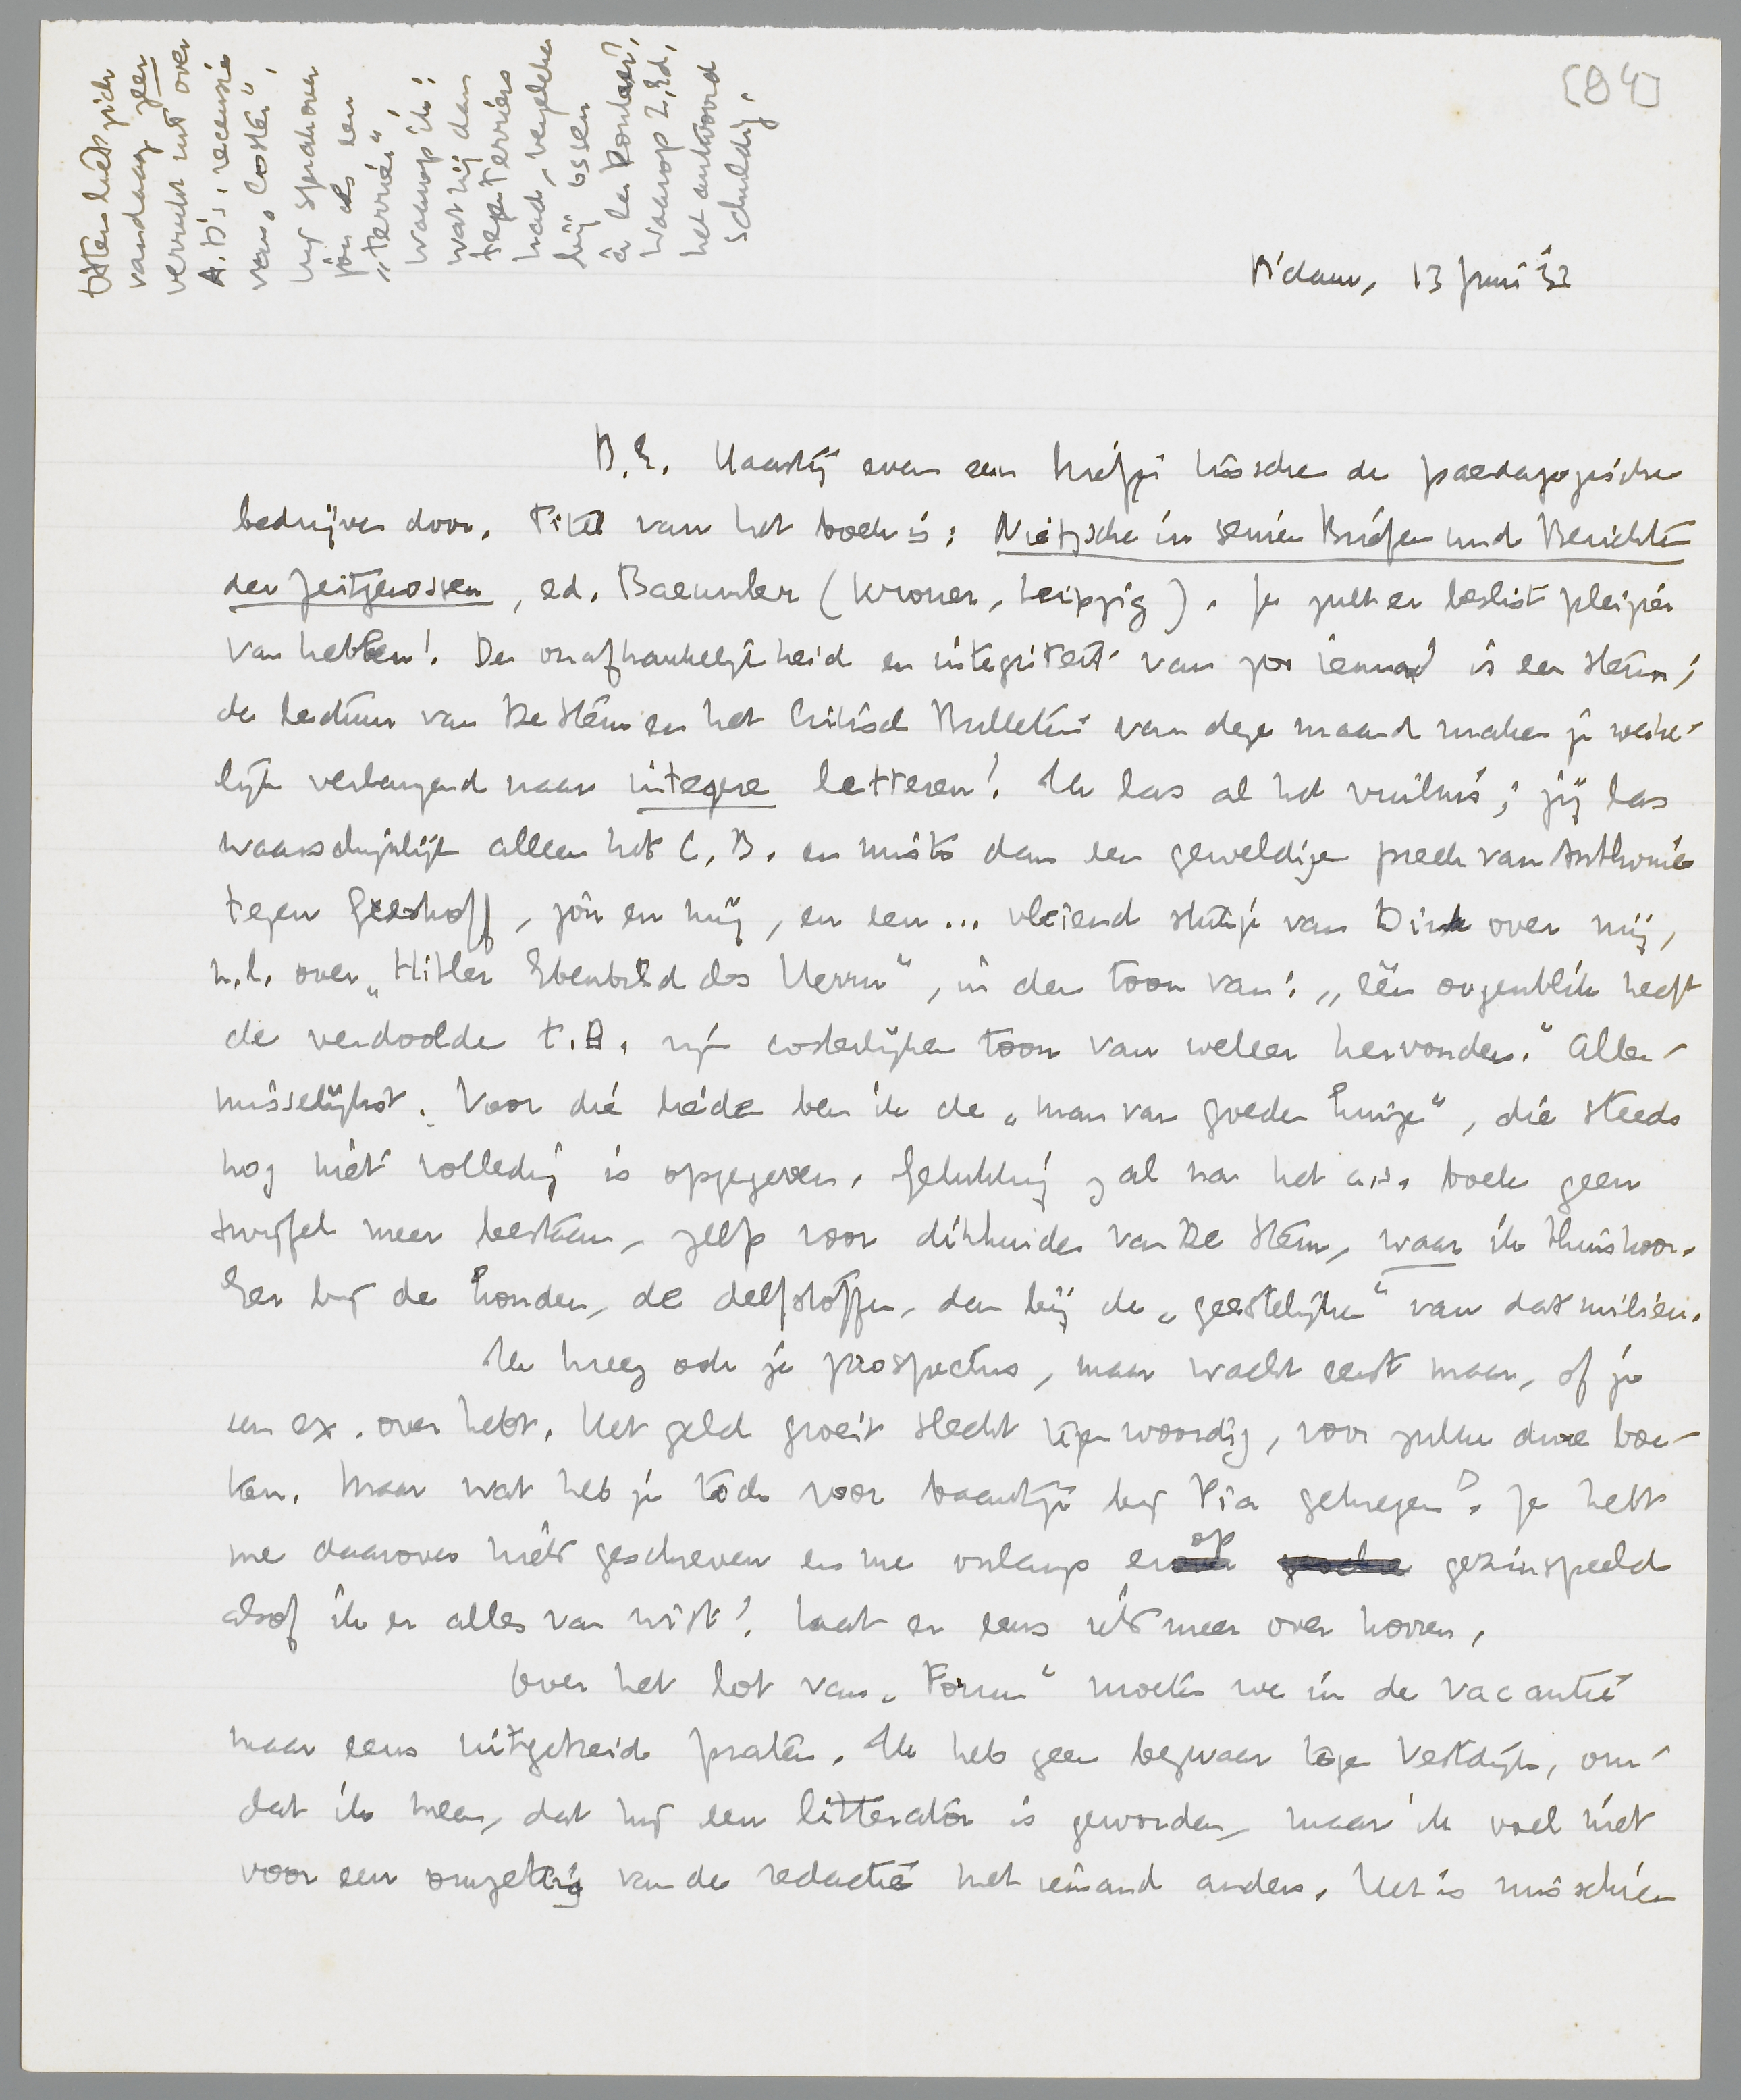 [84]
Otten liet zich
vandaag zeer
verrukt uit over
A.D's. recensie
van „Coster”.
Hij sprak over
jou als een
„terriër”
waarop ik:
wat hij dan
tegen terriërs
had, vergeleken
bij ossen
à la Donker?,
waarop Z.Ed.
het antwoord
schuldig.
R'dam, 13 Juni '32
B.E. Haastig even een briefje tusschen de paedagogische
bedrijven door. Titel van het boek is: Nietzsche in seinen Briefen und Berichten
der Zeitgenossen, ed. Baeumler (Kröner, Leipzig). Je zult er beslist pleizier
van hebben! De onafhankelijkheid en integriteit van zoo iemand is een steun;
de lectuur van De Stem en het Critisch Bulletin van deze maand maken je werke-
lijk verlangend naar integere letteren! Ik las al het vuilnis; jij las
waarschijnlijk alleen het C.B. en mist dan een geweldige preek van Anthonie
tegen Greshoff, jou en mij, en een... vleiend stukje van Dirk over mij,
n.l. over „Hitler Ebenbild des Herrn”, in den toon van: „één oogenblik heeft
de verdoolde t.B. zijn costerlijken toon van weleer hervonden.” Aller-
misselijkst. Voor die heide ben ik de „man van goeden huize”, die steeds
nog niet volledig is opgegeven. Gelukkig zal na het a.s. boek geen
twijfel meer bestaan, zelfs voor dikhuiden van De Stem, waar ik thuishoor.
Eer bij de honden, de delfstoffen, dan bij de „geestelijken” van dat milieu.
Ik kreeg ook je prospectus, maar wacht eerst maar, of je
een ex. over hebt. Het geld groeit slecht tegenwoordig, voor zulke dure boe-
ken. Maar wat heb je toch voor baantje bij Pia gekregen? Je hebt
me daarover niets geschreven en me onlangs erop gezinspeeld
alsof ik er alles van wist! Laat er eens iets meer over hooren.
Over het lot van „Forum” moeten we in de vacantie
maar eens uitgebreid praten. Ik heb geen bezwaar tegen Vestdijk, om-
dat ik meen, dat hij een litterator is geworden, maar ik voel niet
voor een omzetting van de redactie met iemand anders. Het is misschien